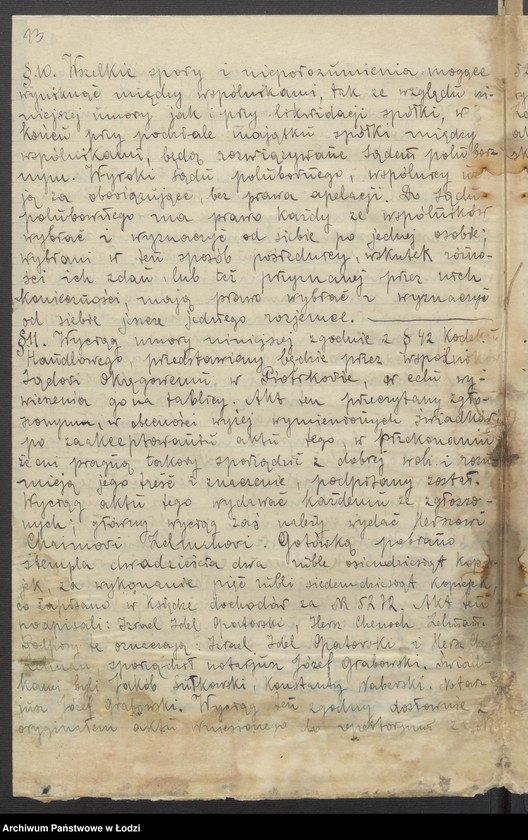 13
§.10. Wszelkie spory i nieporozumienia mogące
wyniknąć między wspólnikami, tak ze względu ni-
niejszej umowy jak i przy likwidacji spółki, w
końcu przy podziale majątku spółki między
wspólnikami, będą rozwiązywane sądem polubow-
nym. Wyroki sądu polubownego, wspólnicy
ją za obowiązujące, bez prawa apelacji. Do sądu
polubownego ma prawo każdy ze wspólników
wybrać i wyznaczyć od siebie po jednej osobie;
wybrani w ten sposób pośrednicy, wskutek różno-
ści ich zdań lub też przyznanej przez nich
konieczności, mają prawo wybrać i wyznaczyć
od siebie jeszcze jednego rozjemcę.
§11. Wyciąg umowy niniejszej zgodnie z § 42 Kodeksu
Handlowego, przedstawiony będzie przez wspólni
Sądowi Okręgowemu w Piotrkowie, w celu wy-
wieszenia go na tablicy. Akt ten przeczytany zgło-
szonym, w obecności wyżej wymienionych świadków,
po zaakceptowaniu aktu tego, w przekonaniu
że oni pragną takowy sporządzić z dobrej woli i rozu
mieją jego treść i znaczenie, podpisany został.
Wyciąg aktu tego wydawać każdemu ze zgłoszo-
nych; główny wyciąg zaś należy wydać Herszowi
Chaimowi Zelmanowi. Gotówką pobrano
stempla dwadzieścia dwa ruble osiemdziesiąt kopie
jek, za wykonanie pięć rubli siedemdziesiąt kopiejek,
co zapisano w księdze dochodów za № 5272. Akt ten
podpisali: Izrael Idel Opatowski, Hersz Chenoch Zelman.
Podpisy te oznaczają: Izrael Idel Opatowski i Hersz
Zelman sporządził notarjusz Józef Grabowski. Świad-
kami byli Jakób Sutkowski, Konstanty Naberski. Notar-
jusz Józef Grabowski. Wyciąg ten zgodny dosłownie z
oryginałem aktu wniesionego do repertorjum
Archiwum Państwowe w Łodzi